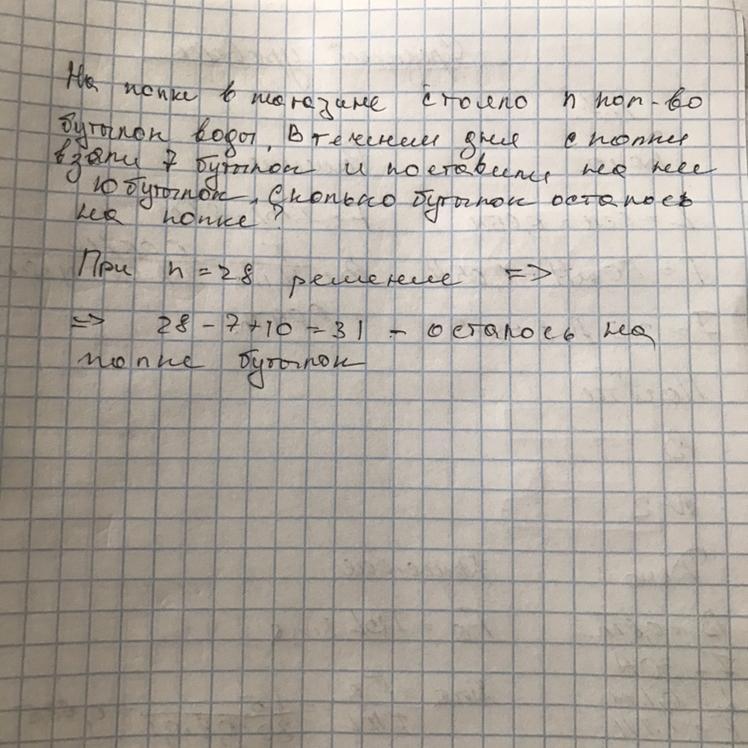 На полке в магазине стояло n кол-во
бутылок воды. В течении дня с полки
взяли 7 бутылок и поставили на нее
10 бутылок. Сколько бутылок осталось
на полке?
При n = 28 решение =>
=> 28 - 7 + 10 = 31 - осталось на
полке бутылок